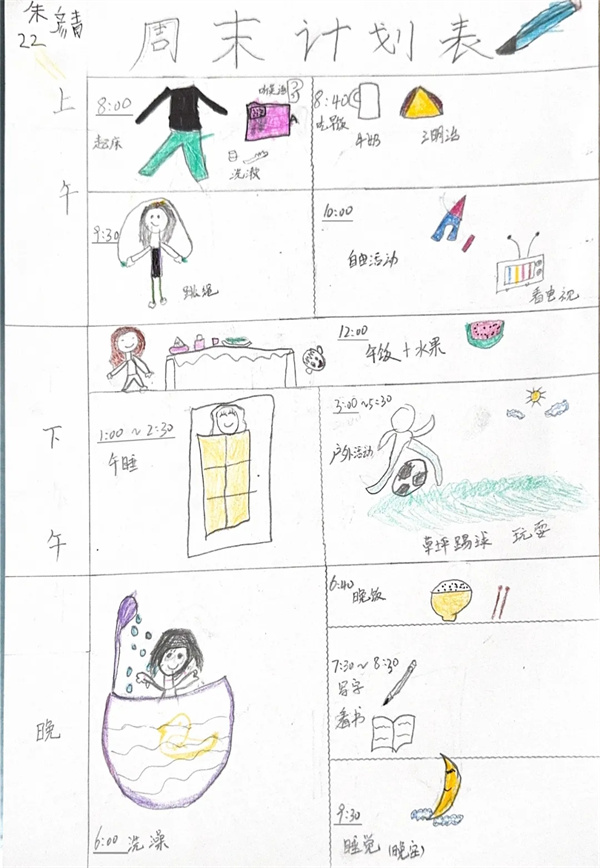 22
周末计划表
上午
8:00
起床
洗漱
8:40
吃早饭
牛奶
三明治
9:30
跳绳
10:00
自由活动
看电视
下午
12:00
午饭+水果
1:00~2:30
午睡
3:00~5:30
户外活动
草坪踢球 玩耍
晚
6:00 洗澡
6:40
晚饭
7:30~8:30
写字
看书
9:30
睡觉(晚安)